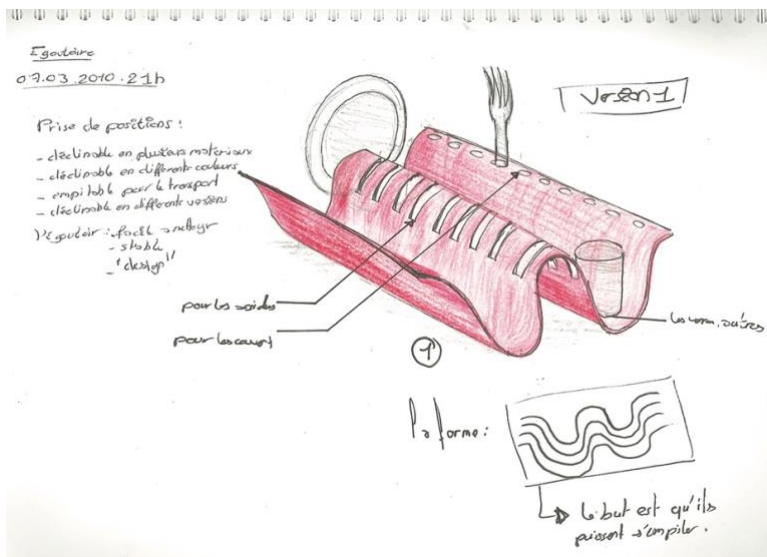 Egoutoire
07.03.2010.21h
Version 1
Prise de positions :
- déclinable en plusieurs matériaux
- déclinable en différents couleurs
- empilable pour le transport
- déclinable en différents versions
l'égoutoir : facile à nettoyer
- stable
- "design"
pour les
pour les couverts
les verres, autres
1
la forme :
le but est qu'ils
puissent s'empiler.